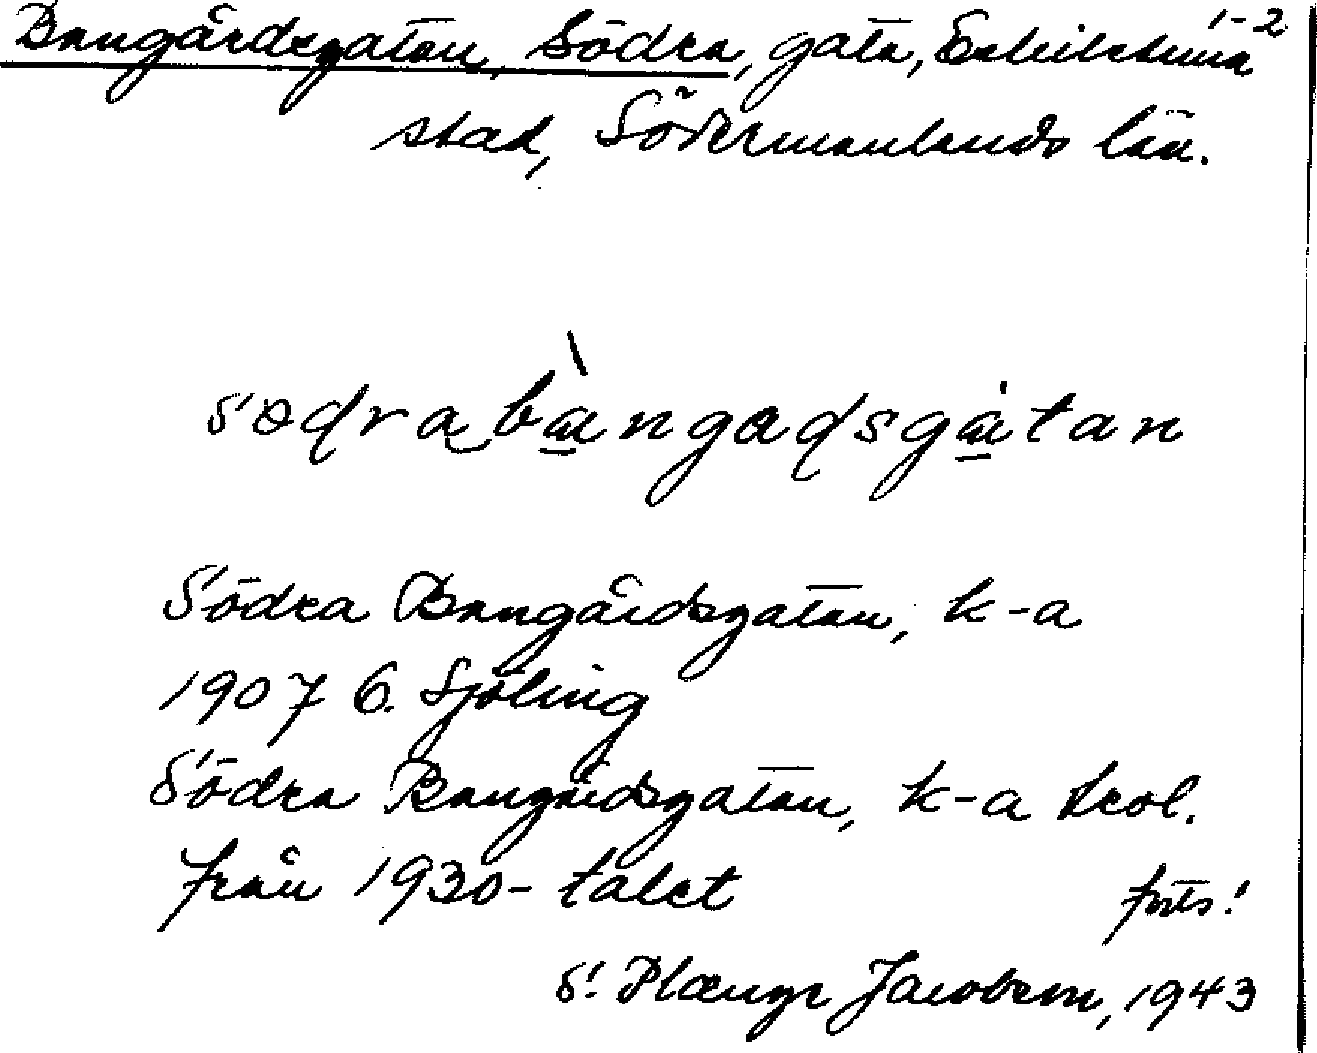 Bangårdsgatan, Södra, gata, Eskilstuna 1-2
stad, Södermanlands län.
södra bangaḍsgàtan
Södra Bangårdsgatan, k-a
1907 G. Sjöling
Södra Bangårdsgatan, k-a trol.
från 1930-talet
forts!
S. Plænge Jacobson, 1943